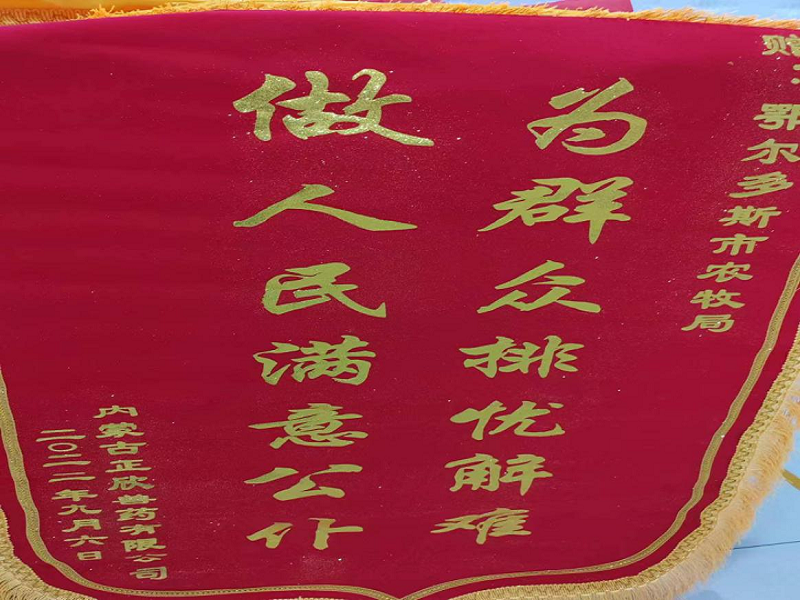 赠：鄂尔多斯市农牧局
为群众排忧解难
做人民满意公仆
内蒙古正欣兽药有限公司
二〇二二年九月六日